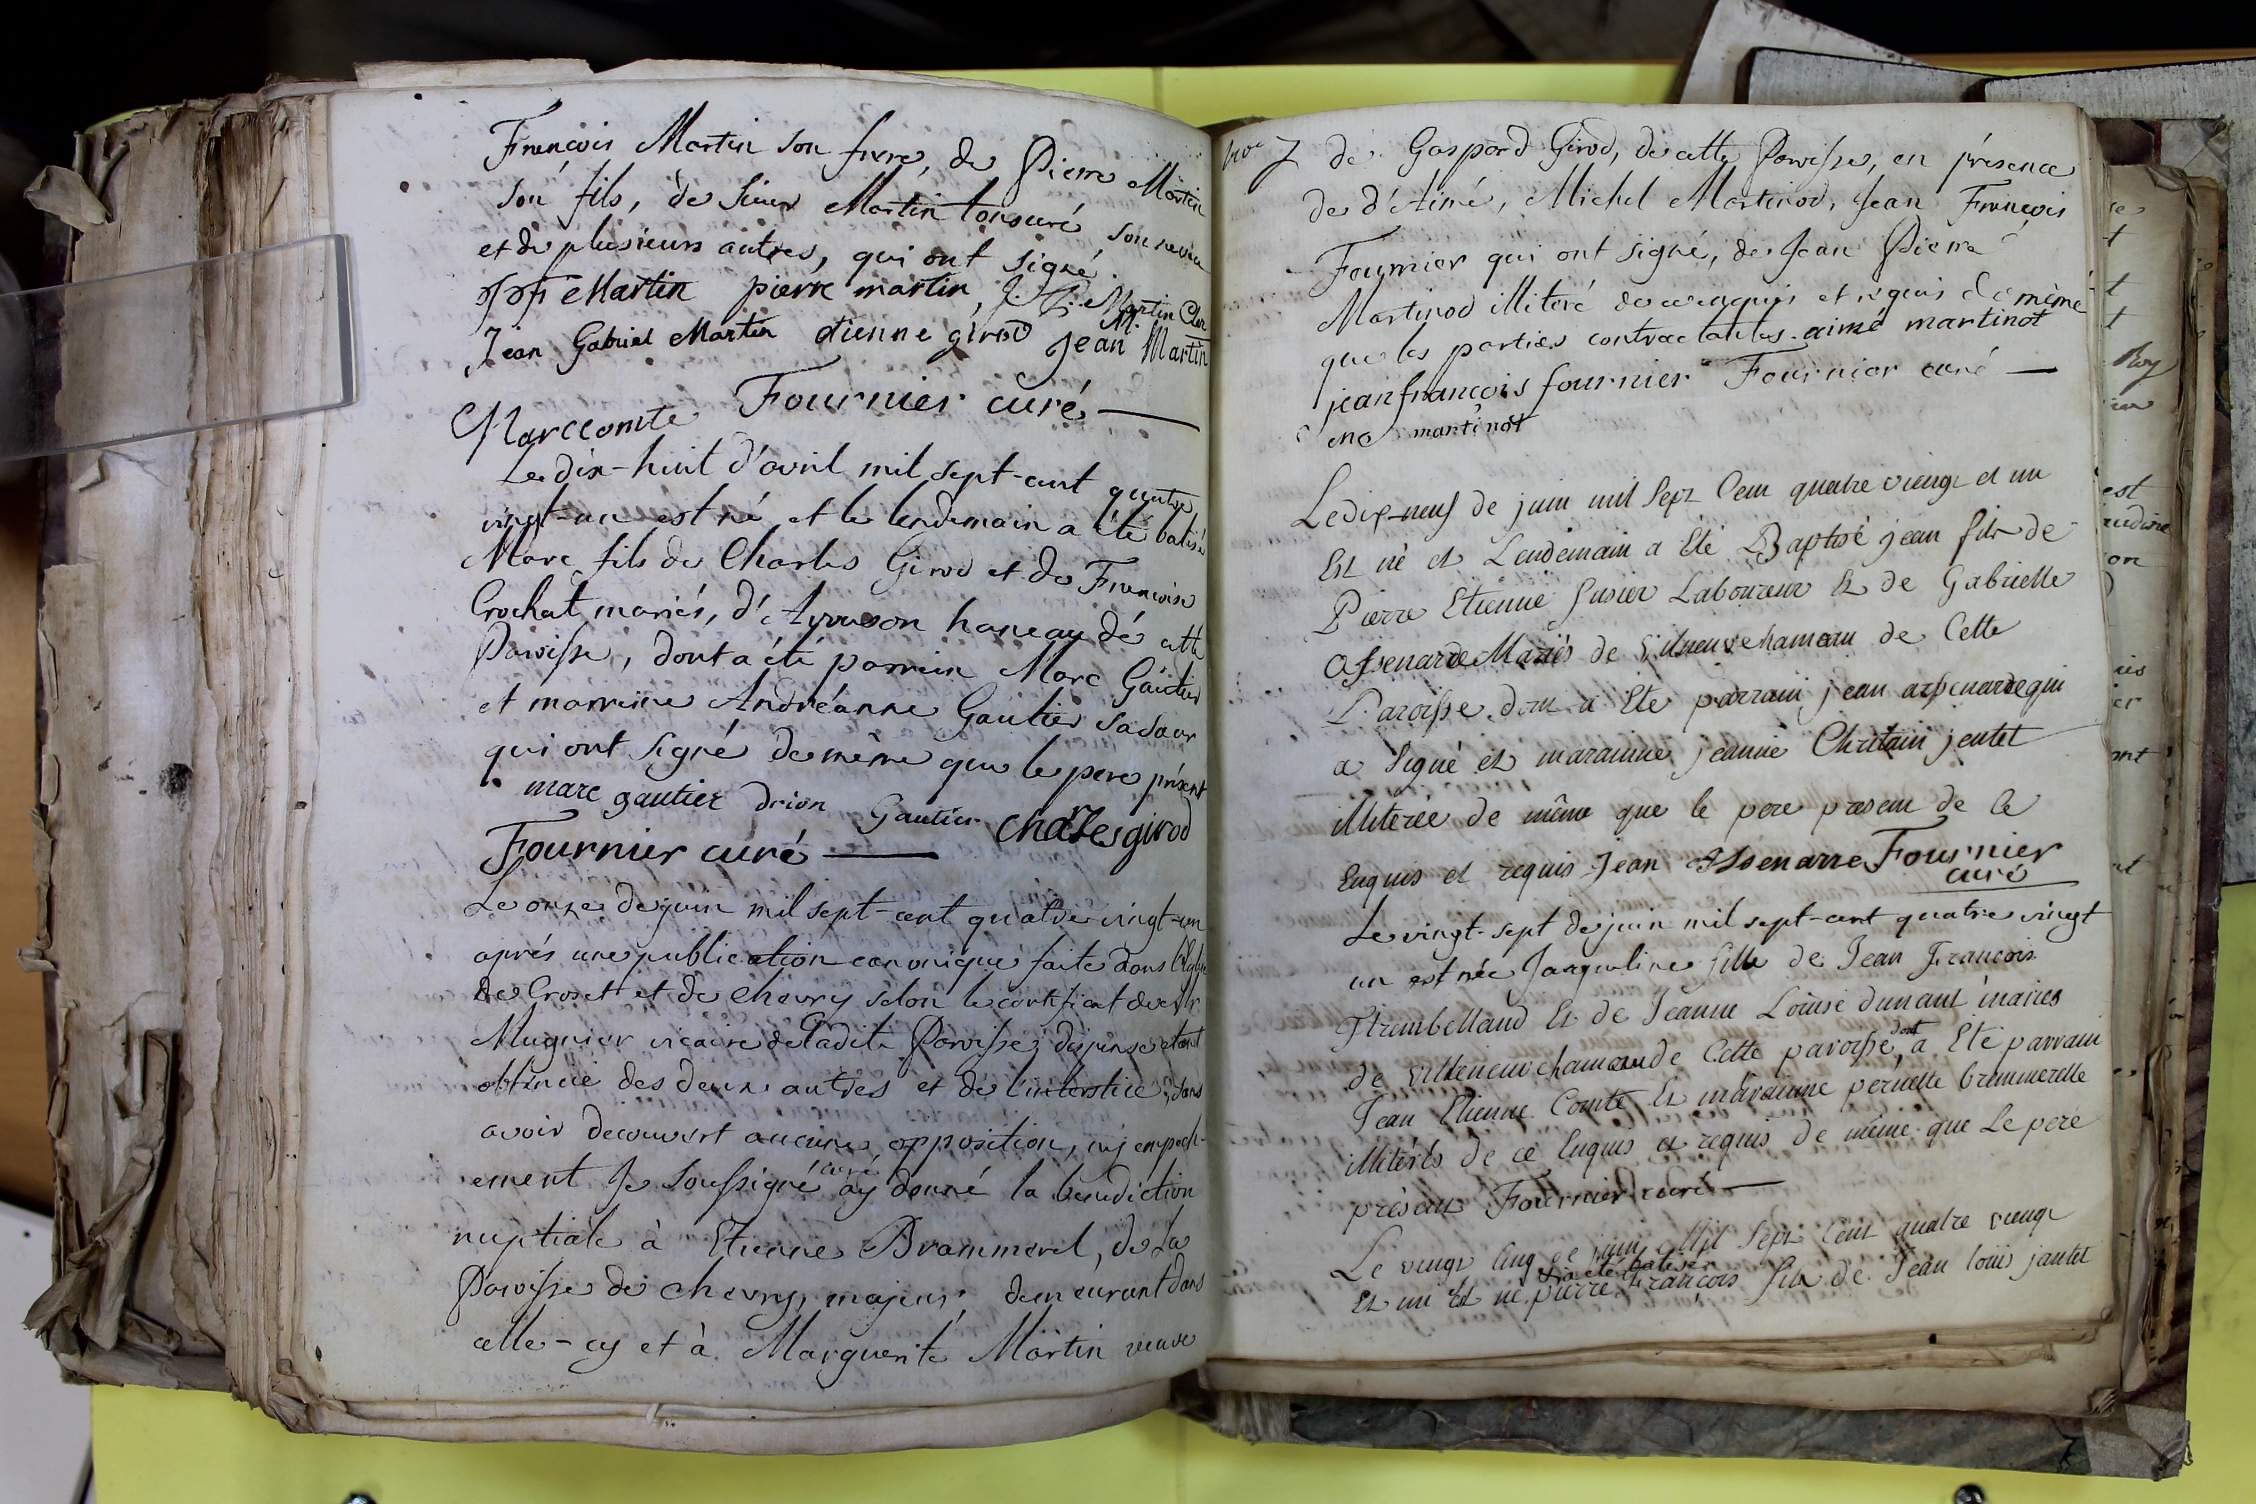 François Martin son frere, de Pierre Martin
son fils, de Sieur Martin tonsuré, son neveu
et de plusieurs autres, qui ont signé.
Martin pierre martin, J. Martin Clerc
Jean Gabriel Martin etienne girod Jean M. Martin
Marc comte Fournier curé
Le dix-huit d'avril mil sept-cent quatre
vingt-un est né et le lendemain a été batisé
Marc fils de Charles Girod et de Francoise
Crochat mariés, d'Avouson hameau de cette
Paroisse, dont a été parrein Marc Gautier
et marreine Andréanne Gautier sa sœur
qui ont signé de même que le pere présent
marc gautier drion Gautier charles girod
Fournier curé
Le onze de juin mil sept-cent quatre vingt-un
aprés une publication canonique faite dans l'Eglise
de Croset et de Chevry selon le certificat de Mr
Mugnier vicaire de ladite Paroisse, dispense etant
obtenuë des deux autres et de l'interstice, sans
avoir decouvert aucune opposition, nij empech-
ement Je soussigné curé ay donné la benediction
nuptiale à Etienne Brammerel, de la
Paroisse de chevry, majeur, demeurant dans
celle-cy et à Marguerite Martin veuve
de Gaspard Girod, de cette Paroisse, en présence
de d'Aimé, Michel Martinod, Jean François
Fournier qui ont signé, de Jean Pierre
Martinod illiteré de ce enquis et requis de même
que les parties contractantes. aimé martinot
jean françois fournier Fournier curé
martinot
Le dix-neuf de juin mil Sept Cent quatre vingt et un
Est né et Lendemain a Eté Baptisé jean fils de
Pierre Etienne Susier Laboureur Et de Gabrielle
Assenarde Mariés de Vilneuve hameau de Cette
Paroisse dont a Ete parrain jean assenarde qui
a Signé et maraine jeanne Chatain jentet
illiterée de même que le pere present de Ce
Enquis et requis Jean Assenarre Fournier
curé
Le vingt-sept de juin mil sept-cent quatre vingt
un est née Jacqueline fille de Jean François
Trambelland Et de Jeanne Loüise dunant mariés
de villeneuve hameau de Cette paroisse, dont a Eté parrain
Jean Etienne Comte Et maraine pernette brammerelle
illiterés de ce Enquis et requis de même que Le pere
présent Fournier curé
Le vingt Cinq de juin Mil Sept Cent quatre vingt
Et un Est né et a été batisé pierre François fils de Jean loüis jantet